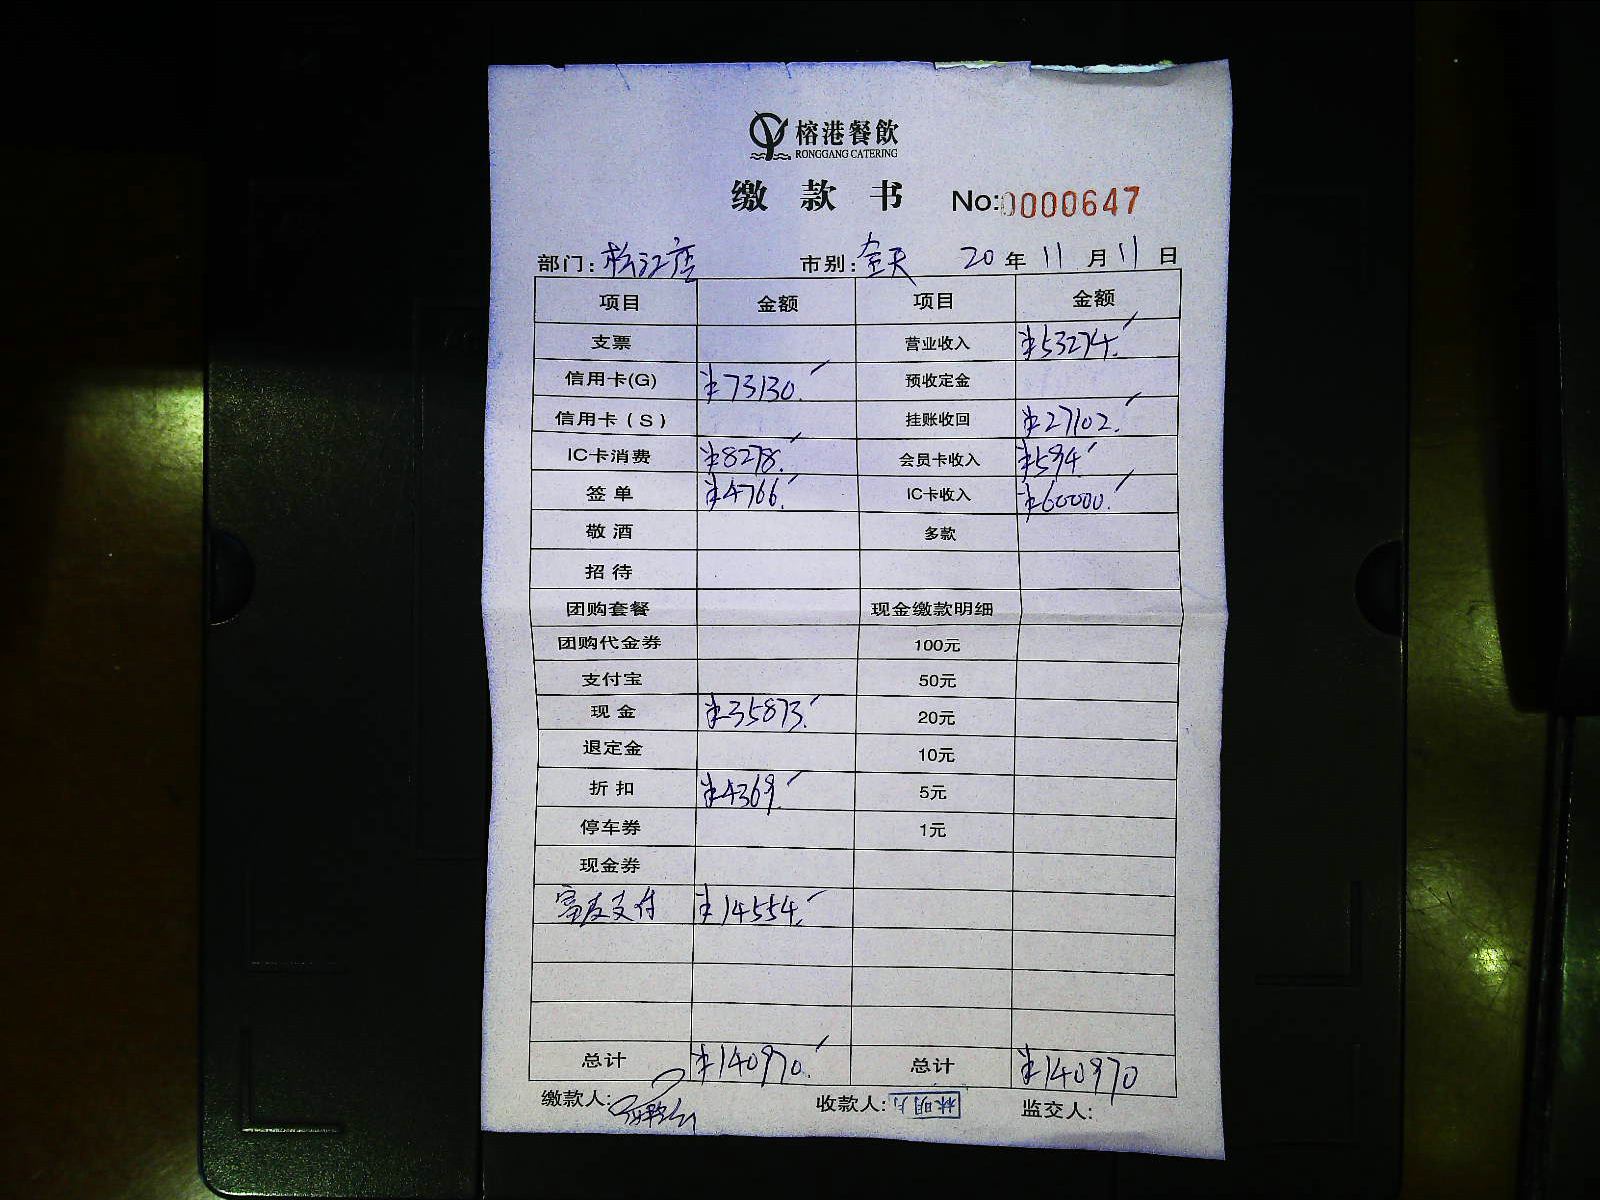 榕港餐飲
RONGGANG CATERING
缴款书 No:0000647
部门:松江店 市别:全天 20年11月11日
项目 金额 项目 金额
支票 营业收入 ¥53274.
信用卡(G) ¥73130. 预收定金
信用卡(S) 挂账收回 ¥27102.
IC卡消费 ¥8278. 会员卡收入 ¥594
签单 ¥4766. IC卡收入 ¥60000.
敬酒 多款
招待
团购套餐 现金缴款明细
团购代金券 100元
支付宝 50元
现金 ¥35873. 20元
退定金 10元
折扣 ¥4369. 5元
停车券 1元
现金券
富友支付 ¥14554.
总计 ¥140970. 总计 ¥140970
缴款人: 收款人: 监交人: